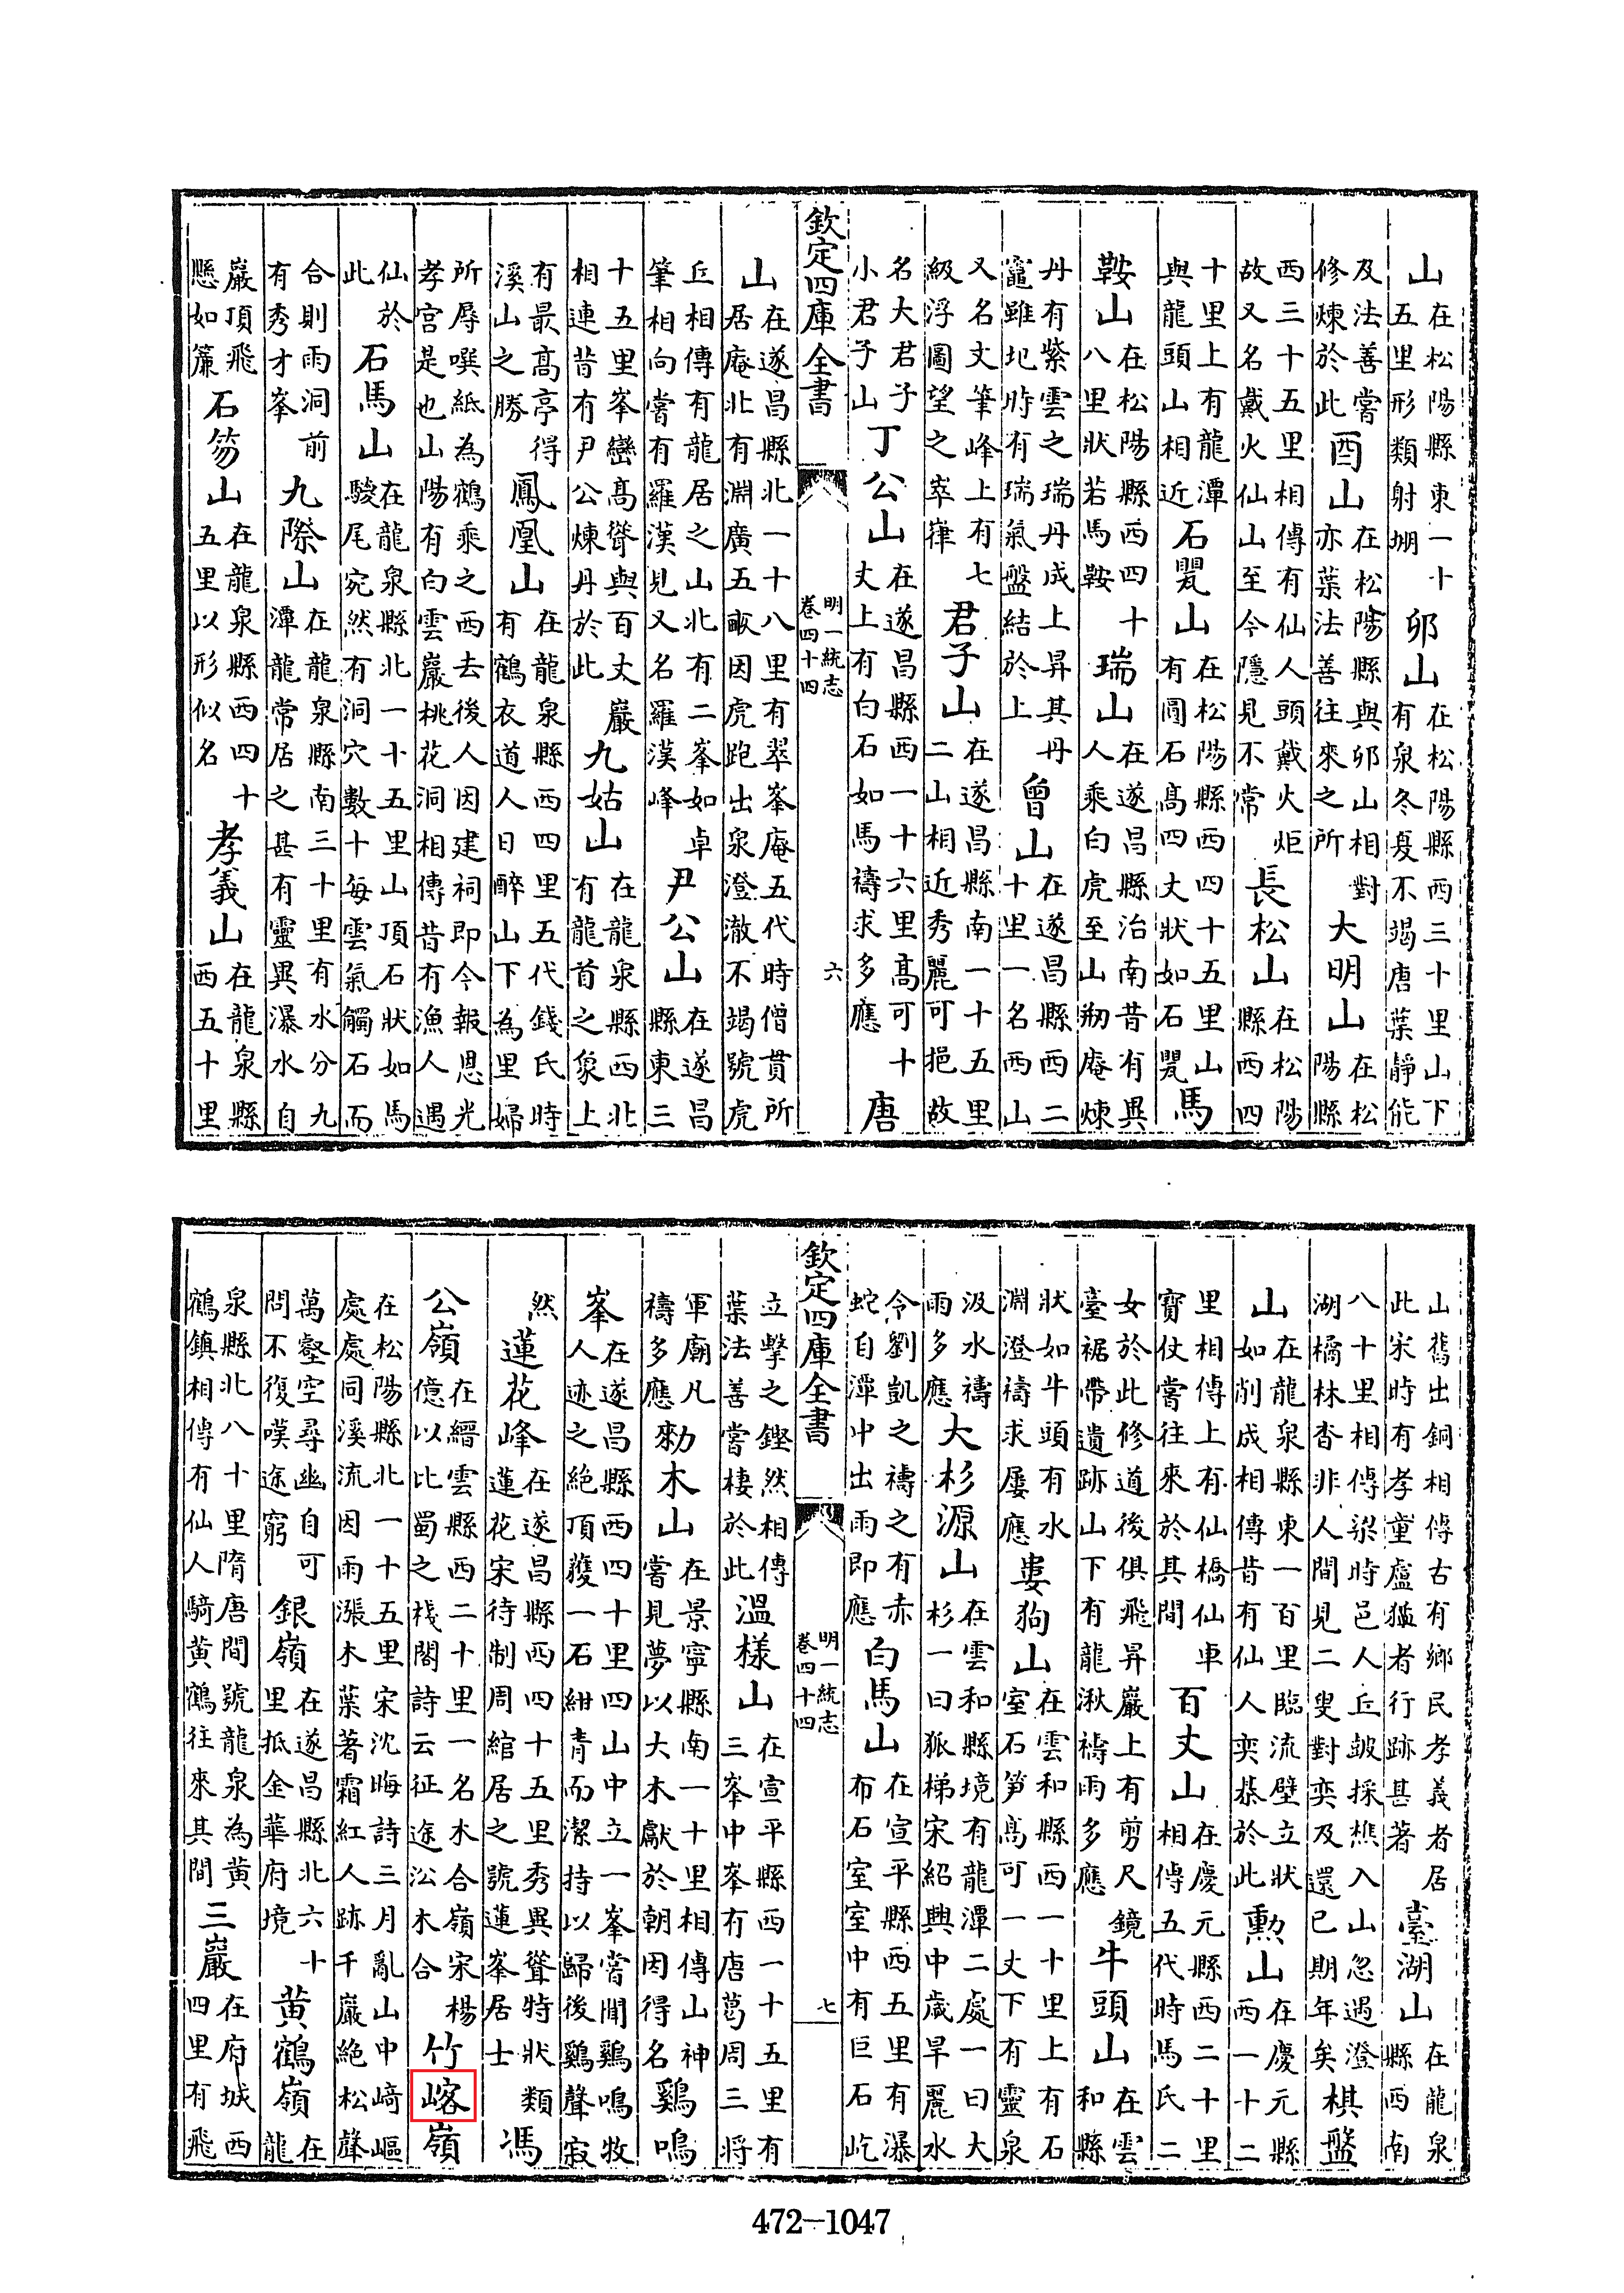 山在松陽縣東一十五里形類射堋卯山在松陽縣西三十里山下有泉冬夏不竭唐葉靜能
及法善嘗修煉於此酉山在松陽縣與卯山相對亦葉法善往來之所大明山在松陽縣
西三十五里相傳有仙人頭戴火炬故又名戴火仙山至今隱見不常長松山在松陽縣西四
十里上有龍潭與龍頭山相近石甖山在松陽縣西四十五里山有圓石高四丈狀如石甖馬
鞍山在松陽縣西四十八里狀若馬鞍瑞山在遂昌縣治南昔有異人乘白虎至山剏庵煉
丹有紫雲之瑞丹成上昇其丹竈雖圮時有瑞氣盤結於上曾山在遂昌縣西二十里一名西山
又名文筆峰上有七級浮圖望之崒嵂君子山在遂昌縣南一十五里二山相近秀麗可挹故
名大君子小君子山丁公山在遂昌縣西一十六里高可十丈上有白石如馬禱求多應唐
欽定四庫全書 明一統志卷四十四 六
山在遂昌縣北一十八里有翠峯庵五代時僧貫所居庵北有淵廣五畝因虎跑出泉澄澈不竭號虎
丘相傳有龍居之山北有二峯如卓筆相向嘗有羅漢見又名羅漢峰尹公山在遂昌縣東三
十五里峯巒高聳與百丈巖相連昔有尹公煉丹於此九姑山在龍泉縣西北有龍首之象上
有最高亭得溪山之勝鳳凰山在龍泉縣西四里五代錢氏時有鶴衣道人日醉山下為里婦
所辱噀紙為鶴乘之西去後人因建祠即今報恩光孝宮是也山陽有白雲巖桃花洞相傳昔有漁人遇
仙於此石馬山在龍泉縣北一十五里山頂石狀如馬駿尾宛然有洞穴數十每雲氣觸石而
合則雨洞前有秀才峯九際山在龍泉縣南三十里有水分九潭龍常居之甚有靈異瀑水自
巖頂飛懸如簾石笏山在龍泉縣西四十五里以形似名孝義山在龍泉縣西五十里
山舊出銅相傳古有鄉民孝義者居此宋時有孝童盧猛者行跡甚著臺湖山在龍泉縣西南
八十里相傳梁時邑人丘皴採樵入山忽遇澄湖橘林杳非人間見二叟對奕及還已期年矣棋盤
山在龍泉縣東一百里臨流壁立狀如削成相傳昔有仙人奕棊於此勲山在慶元縣西一十二
里相傳上有仙橋仙車寶仗嘗往來於其間百丈山在慶元縣西二十里相傳五代時馬氏二
女於此修道後俱飛昇巖上有剪尺鏡臺裾帶遺跡山下有龍湫禱雨多應牛頭山在雲和縣
狀如牛頭有水淵澄禱求屢應婁狗山在雲和縣西一十里上有石室石笋高可一丈下有靈泉
汲水禱雨多應大杉源山在雲和縣境有龍潭二處一曰大杉一曰狐梯宋紹興中歲旱麗水
令劉凱之禱之有赤蛇自潭中出雨即應白馬山在宣平縣西五里有瀑布石室室中有巨石屹
欽定四庫全書 明一統志卷四十四 七
立擊之鏗然相傳葉法善嘗棲於此溫樣山在宣平縣西一十五里有三峯中峯有唐葛周三將
軍廟凡禱多應勑木山在景寧縣南一十里相傳山神嘗見夢以大木獻於朝因得名鷄鳴
峯在遂昌縣西四十里四山中立一峯嘗聞鷄鳴牧人迹之絕頂獲一石紺青而潔持以歸後鷄聲寂
然蓮花峰在遂昌縣西四十五里秀異聳特狀類蓮花宋待制周綰居之號蓮峯居士馮
公嶺在縉雲縣西二十里一名木合嶺宋楊億以比蜀之棧閣詩云征途㳂木合竹㟯嶺
在松陽縣北一十五里宋沈晦詩三月亂山中﨑嶇處處同溪流因雨漲木葉著霜紅人跡千巖絕松聲
萬壑空尋幽自可問不復嘆途窮銀嶺在遂昌縣北六十里抵金華府境黄鶴嶺在龍
泉縣北八十里隋唐間號龍泉為黄鶴鎮相傳有仙人騎黄鶴往來其間三巖在府城西四里有飛
472-1047